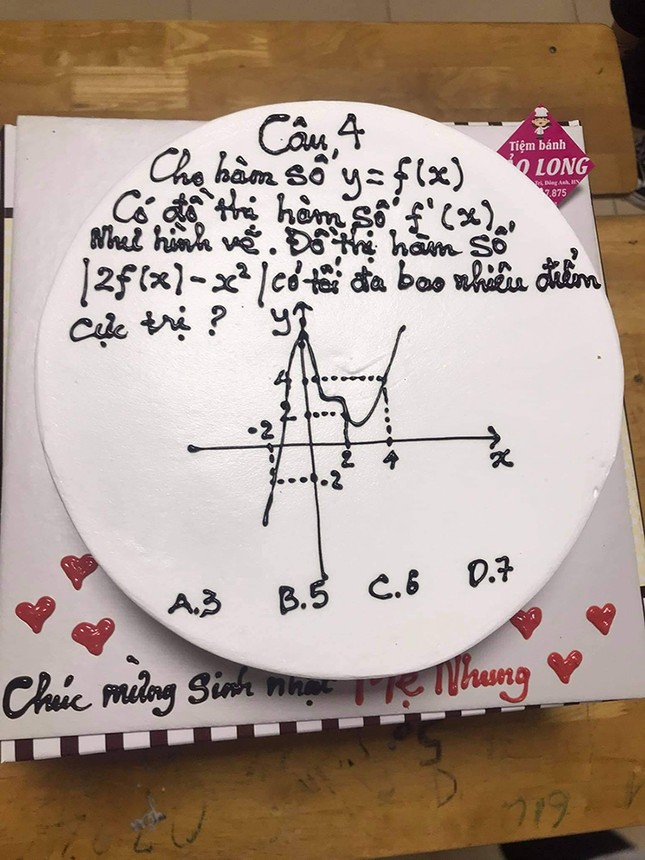 Câu 4
Cho hàm số y = f(x)
Có đồ thị hàm số f'(x)
Như hình vẽ. Đồ thị hàm số
|2f(x) - x² | có tối đa bao nhiêu điểm
cực trị ?
y
4
2
-2
2
4
x
-2
A.3 B.5 C.6 D.7
Chúc mừng sinh nhật Mẹ Nhung
Tiệm bánh
LONG
Đông Anh, HN
7.875